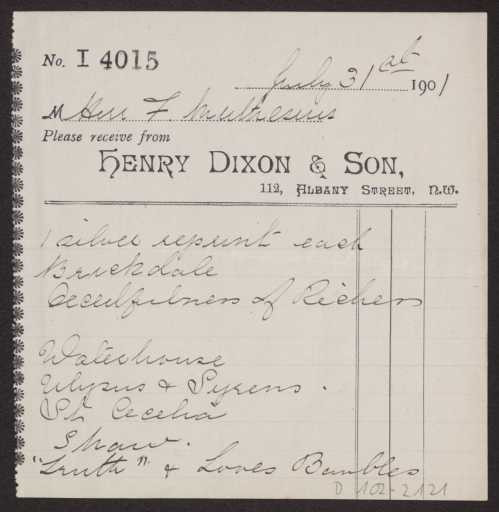 No. I 4015
July 31st 1901
M Herr F. Muthesius
Please receive from
HENRY DIXON & SON,
112, ALBANY STREET, N.W.
1 silver reprint each
Brickdale
Deceitfulness of Riches
Waterhouse
Ulysus & Syrens.
St Cecelia
Shaw.
"Truth" & Loves Baubles
D 102-2121